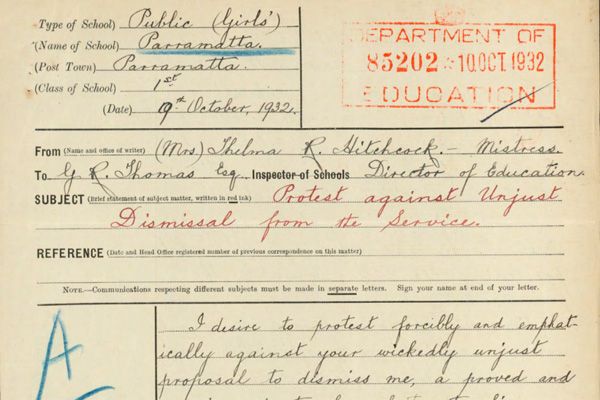 Type of School) Public (Girls')
(Name of School) Parramatta.
(Post Town) Parramatta.
(Class of School) 1st
(Date) 9th October, 1932.
DEPARTMENT OF
85202 10 OCT 1932
EDUCATION
From (Name and office of writer) (Mrs) Thelma R. Hitchcock. - Mistress.
To G. R. Thomas Esq. Inspector of Schools Director of Education.
SUBJECT (Brief statement of subject matter, written in red ink) Protest against Unjust
Dismissal from the Service.
REFERENCE (Date and Head Office registered number of previous correspondence on this matter)
NOTE.—Communications respecting different subjects must be made in separate letters. Sign your name at end of your letter.
A
I desire to protest forcibly and emphat-
ically against your wickedly unjust
proposal to dismiss me, a proved and